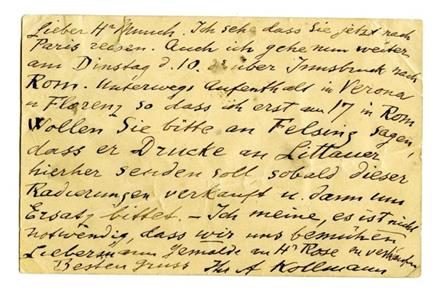 Lieber Hr Munch. Ich sehe dass Sie jetzt nach
Paris reisen. Auch ich gehe nun weiter
am Dinstag d. 10. über Innsbruck nach
Rom. Unterwegs Aufenthalt in Verona
u Florenz so dass ich erst am 17 in Rom
Wollen Sie bitte an Felsing sagen,
dass er Drucke an Littauer
hierher senden soll sobald dieser
Radierungen verkauft u. dann um
Ersatz bittet. – Ich meine, es ist nicht
notwendig, dass wir uns bemühen
Liebermann Gemälde an Hr Rose zu verkaufen
Besten Gruss Ihr A Kollmann